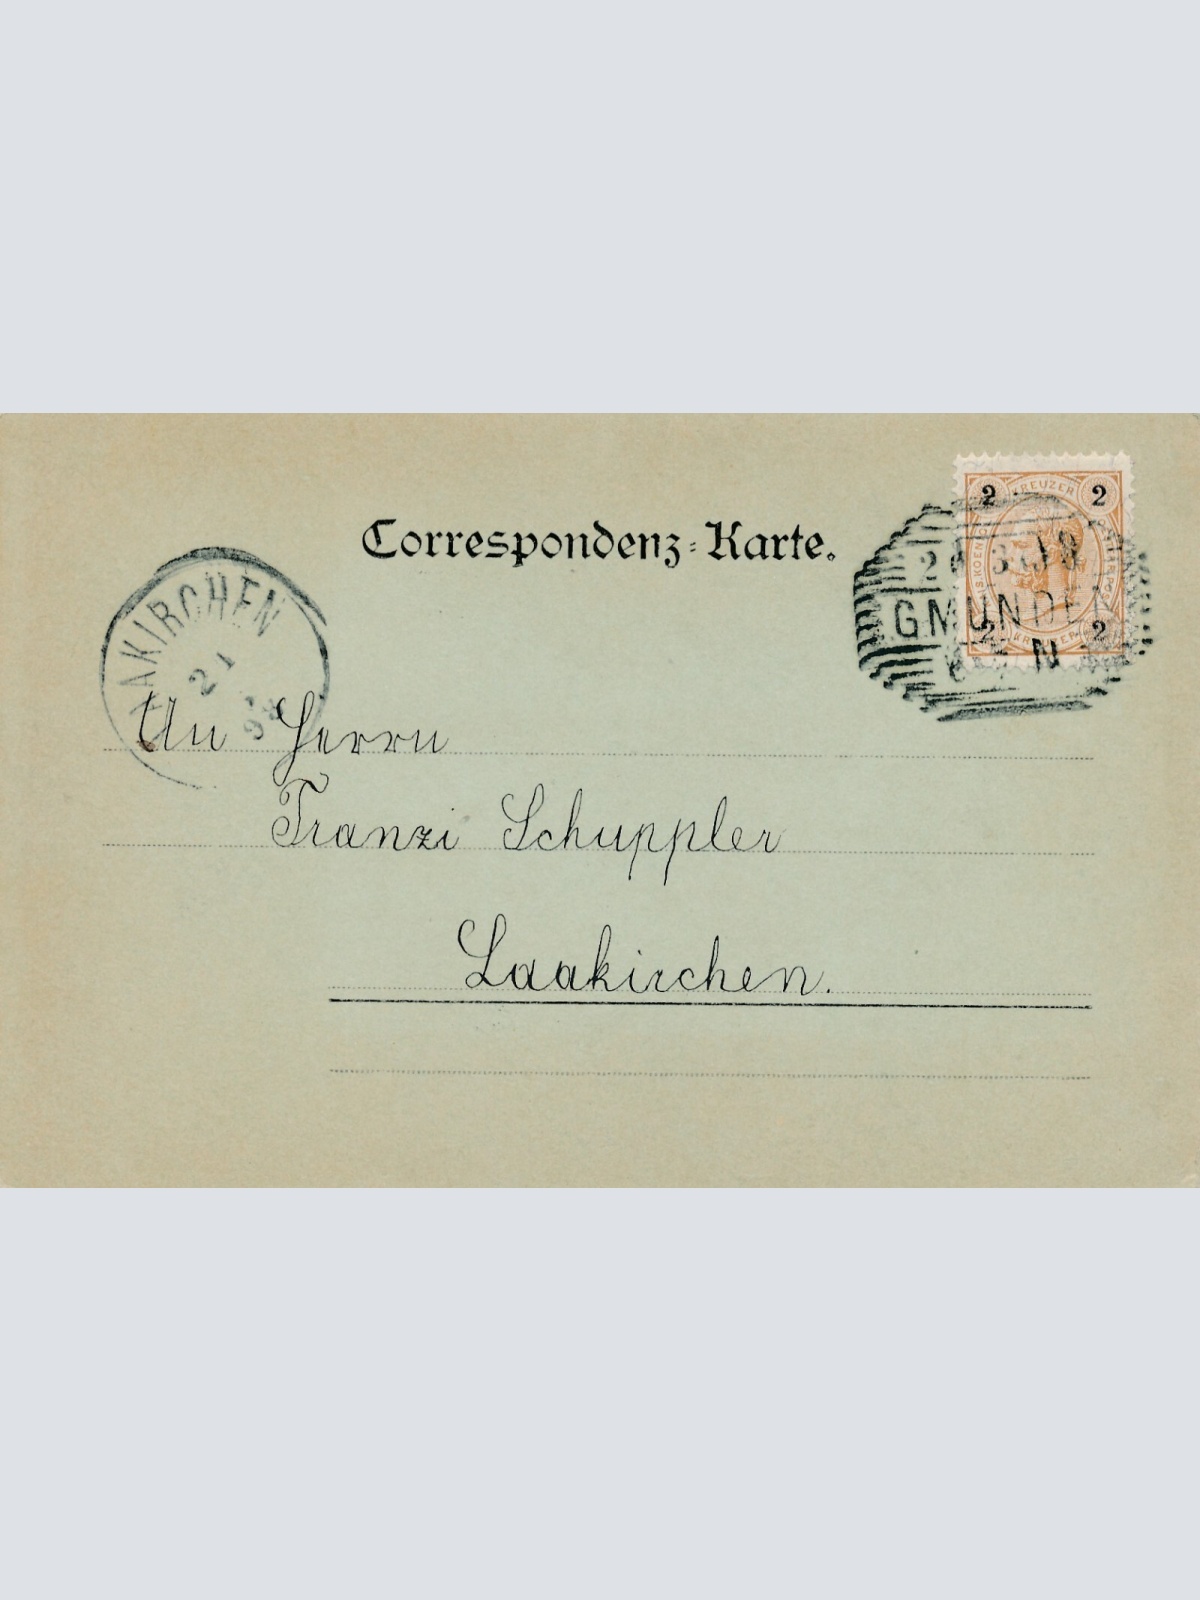 Correspondenz-Karte.
2 KREUZER 2
GMUNDEN
N
2 2
LAAKIRCHEN
21
98
An Herrn
Franzi Schuppler
Laakirchen.